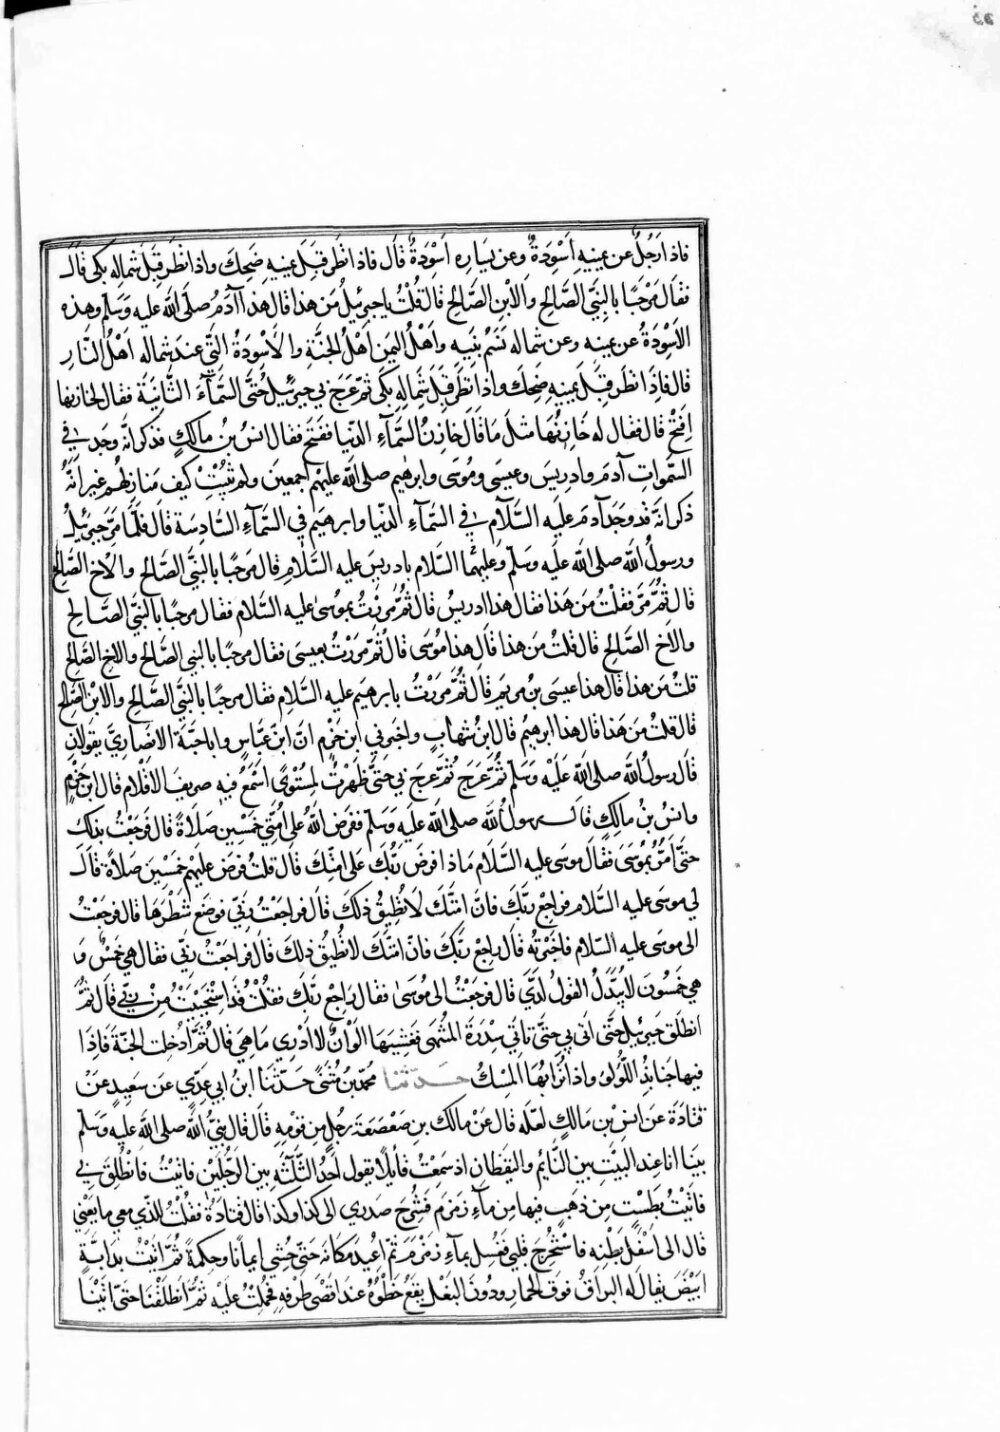 فاذا رَجُلٌ عن يمينِهِ اَسْوِدَةٌ وعن يَسَارِه اَسْوِدَةٌ قال فاذا نظر قِبَلَ يمينه ضَحِكَ واذا نَظَرَ قِبَلَ شماله بكى قال
فقال مَرْحَبًا بالنبيّ الصَّالِحِ والاْبنِ الصَّالِحِ قال قُلْتُ ياجبرئيلُ مَن هذا قال هذا آدَمُ صلى الله عليه وسَلّم وهذه
الاَسْوِدَةُ عن يمينه وعن شماله نَسَمُ بَنِيه واَهْلُ اليمَين اَهْلُ الجنَّةِ والاَسْوِدَةُ التَّي عندَ شماله اَهْلُ النَّارِ
قال فاِذا نظر قِبَلَ يمينه ضَحِكَ واذا نَظَرَ قِبَلَ شِمالِهِ بكى ثمّ عَرَجَ بي جبرئيل حتَّى السَّمآءَ الثَّانيةَ فقال لخازِنِها
اِفتَحْ قال فقال له خازِنُهَا مثلَ مَا قَالَ خازِنُ السَّمآءِ الدّنيا ففتح فقال انسُ بنُ مالكٍ فذكر انّه وَجَد في
السَّموات آدمَ وادريسَ وعيسَى ومُوسَى وابرٰهيم صلى الله عليهم اَجمعينَ ولم يُثْبِتْ كيفَ مَنَازِلُهُم غيرَ انَّهُ
ذكر انّه قد وجد آدمَ عليه السَّلاَم في السَّمآءِ الدّنيا وابرهيم في السَّمآءِ السَّادِسَة قال فلمّا مرّ جبرئيلُ
ورسولُ الله صلى الله عليه وسَلّم وعليهما السَّلام بادريسَ عليه السَّلامِ قال مرحبًا بالنبيّ الصَّالح والاخ الصَّالح
قال ثُمَّ مرَّ فقلتُ من هذا فقال هذا ادريسُ قال ثُمَّ مررْتُ بموسىٰ عليه السَّلام فقال مرحبًا بالنبيّ الصَّالحِ
والاَخ الصَّالحِ قال قلتُ من هذا قال هذا مُوسَى قال ثُمَّ مررْتُ بعيسى فقال مرحبًا بالنبيّ الصَّالح والاخ الصَّالح
قلتُ مَن هذا قال هذا عيسى بنُ مريم قال ثُمَّ مررْتُ بابرهيم عليه السَّلام فقال مرحبًا بالنبيّ الصَّالحِ والابْنِ الصَّالح
قال قلتُ من هذا قال هذا ابرهيمُ قال ابنُ شهابٍ واخبرني ابن حَزْمٍ انَّ ابنَ عَبَّاسٍ واباحَبَّةَ الانصاريَّ يقولانِ
قال رسولُ الله صلى الله عَلَيْه وسَلّم ثُمَّ عَرَجَ ثُمَّ عرج بي حتىَّ ظَهَرْتُ لمِسُتَوًى اَسْمَعُ فيه صريفَ الاَقْلامِ قال ابن حزْمٍ
وانسُ بنُ مالكٍ قال رسولُ الله صلى الله عليه وسَلّم ففَرضَ الله على اُمَّتِي خمْسِين صَلاَةً قال فرجعْتُ بذلك
حتَّى اَمُرَّ بمُوسَى فقال موسى عليه السَّلام مَاذا فرضَ رَبُّكَ على امّتِكَ قال قلتُ فرَض عليهم خمْسِينَ صَلاةً قال
لي موسى عليه السَّلام فراجِعْ ربَّكَ فانَّ امّتَكَ لاَتُطِيقُ ذلكَ قال فراجَعْتُ ربّي فوضَعَ شَطْرَهَا قال فرجعْتُ
الى موسى عليه السَّلام فاخبرْتُه قال راجِعْ ربَّكَ فانّ امّتَكَ لاتُطِيقُ ذلكَ قال فراجعْتُ ربّي فقال هي خمْسٌ و
هي خمسُونَ لاَيُبدَّلُ القولُ لديَّ قال فرجعْتُ الى مُوسَى فقال راجع ربّكَ فقلْتُ قد اسْتَحْيَيْتُ مِنْ ربّي قال ثُمَّ
انطلق جبرئيلُ حتَّى اتى بي حتىّ تاتي سِدْرَة المُنْتَهَى فغَشِيَهَا اَلْوانٌ لا اَدْرِي مَا هِيَ قال ثُمَّ اُدْخِلت الجنَّةَ فاذا
فيها جنابِذُ اللُّؤلؤ واذا تُرَابُهَا المِسْكُ حدّثنا محمّد بنُ مُثنّىً حدّثنَا ابنُ ابي عَدِيٍّ عن سعيدٍ عَنْ
قتَادَةَ عن انسِ بنِ مَالكٍ لعلَّه قال عَنْ مالكِ بنِ صَعْصَعَةَ رجُلٍ مِن قومِهِ قال قال نبيُّ الله صلى الله عليه وسَلّم
بينَا انا عند البيْتِ بينَ النَّائِم واليَقْظانِ اذ سَمِعْتُ قَائِلاً يقول اَحَدُ الثَّلثَةِ بين الرَّجُلَيْن فاتيْتُ فانْطُلِقَ بي
فاتيْتُ بطَسْتٍ مِن ذهَبٍ فيها مِن مآءِ زمزم فشُرِحَ صَدري الى كذا وكذا قال قتادَةُ فقلْتُ للّذي معي ما يَعْنِي
قال الى اَسْفَلِ بَطْنِه فاسْتُخْرِجَ قلبي فغُسِلَ بمآءِ زمْزَمَ ثمّ اُعِيدَ مكانَه حتىّ حُشِيَ ايمانًا وحِكمةً ثُمَّ اتيْتُ بدابَّةٍ
ابيَضَ يقال له البراقُ فوق الحمار ودُون البَغْل يقعُ خَطْوُهُ عندَ اقصَى طَرْفِه فحُمِلْتُ عليْه ثُمَّ انطَلَقْنَا حتىّ اَتَيْنَا